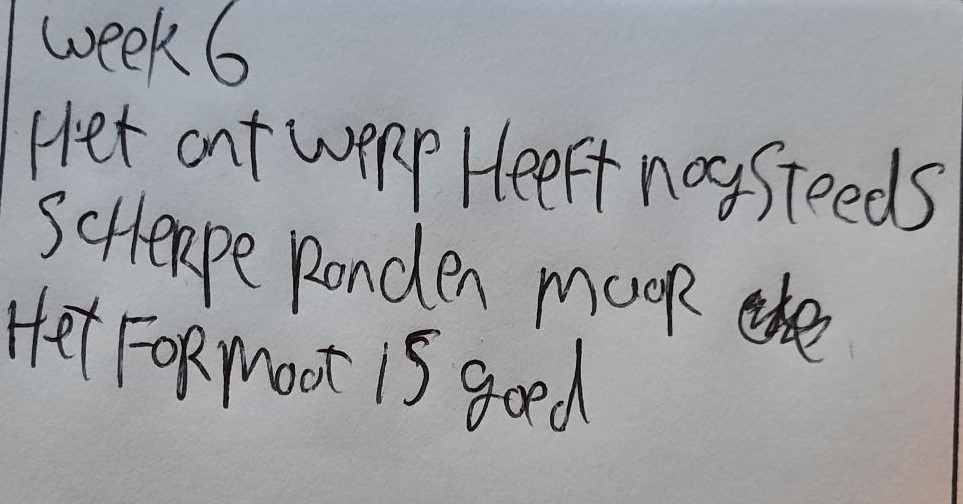 week 6
Het ontwerp Heeft nog steeds
scherpe Randen maar
Het Formaat is goed